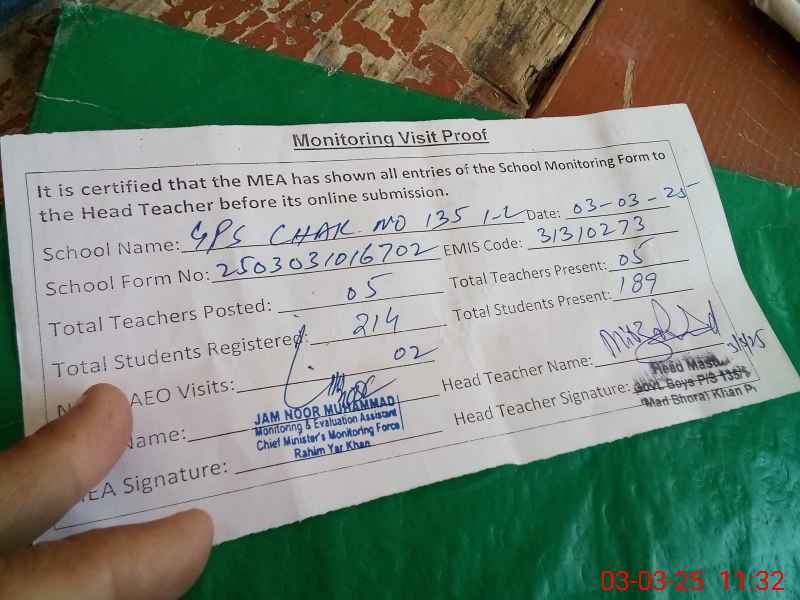 Monitoring Visit Proof
It is certified that the MEA has shown all entries of the School Monitoring Form to
the Head Teacher before its online submission.
School Name: GPS CHAK NO 135 1-L Date: 03-03-25
School Form No: 2503031016702 EMIS Code: 31310273
Total Teachers Posted: 05 Total Teachers Present: 05
Total Students Registered: 214 Total Students Present: 189
AEO Visits: 02 Head Teacher Name:
Name: Head Teacher Signature:
JAM NOOR MUHAMMAD
Monitoring & Evaluation Assistant
Chief Minister's Monitoring Force
Rahim Yar Khan
Head Master
Govt. Boys P/S 135/1
Bhorat Khan
MEA Signature:
03-03-25 11:32